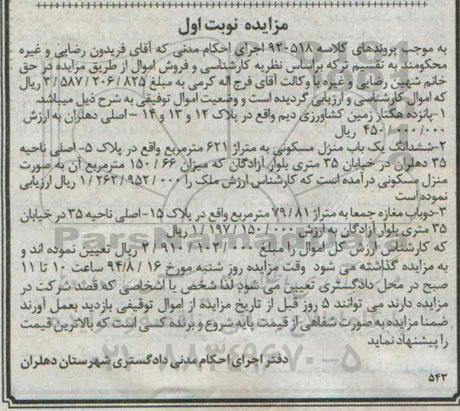 مزایده نوبت اول
به موجب پروندهای کلاسه ۹۲۰۵۱۸ اجرای احکام مدنی که آقای فریدون رضایی و غیره
محکومند به تقسیم ترکه براساس نظریه کارشناسی و فروش اموال از طریق مزایده در حق
خانم شهین رضایی و غیره با وکالت آقای فرج اله کرمی به مبلغ ۸۲۵ / ۲۰۶ / ۵۸۷ / ۳ ریال
که اموال کارشناسی و ارزیابی گردیده است و وضعیت اموال توقیفی به شرح ذیل میباشد.
۱-پانزده هکتار زمین کشاورزی دیم واقع در پلاک ۱۲ و ۱۳ و ۱۴ – اصلی دهلران به ارزش
۰۰۰ / ۰۰۰ / ۴۵۰ ریال
۲-ششدانگ یک باب منزل مسکونی به متراژ ۶۲۱ مترمربع واقع در پلاک ۵- اصلی ناحیه
۳۵ دهلران در خیابان ۳۵ متری بلوار آزادگان که میزان ۶۶ / ۱۵۰ مترمربع آن به صورت
منزل مسکونی در آمده است که کارشناس ارزش ملک را ۰۰۰ / ۹۵۲ / ۲۶۲ / ۱ ریال ارزیابی
نموده است
۳-دوباب مغازه جمعا به متراژ ۸۱ / ۷۹ مترمربع واقع در پلاک ۱۵- اصلی ناحیه ۳۵ در خیابان
۳۵ متری بلوار آزادگان به ارزش ۰۰۰ / ۱۵۰ / ۱۹۷ / ۱ ریال
که کارشناس ارزش کل اموال را مبلغ ۰۰۰ / ۱۰۲ / ۹۱۰ / ۲ ریال تعیین نموده اند و
به مزایده گذاشته می شود وقت مزایده روز شنبه مورخ ۱۶ / ۸ / ۹۴ ساعت ۱۰ تا ۱۱
صبح در محل دادگستری تعیین می شود لذا شخص یا اشخاصی که قصد شرکت در
مزایده دارند می توانند ۵ روز قبل از تاریخ مزایده از اموال توقیفی بازدید بعمل آورند
ضمنا مزایده به صورت شفاهی از قیمت پایه شروع و برنده کسی است که بالاترین قیمت
را پیشنهاد نماید
دفتر اجرای احکام مدنی دادگستری شهرستان دهلران
۵۴۳
ParsNamadData
۰۲۱-۸۸۳۴۹۶۷۰-۵